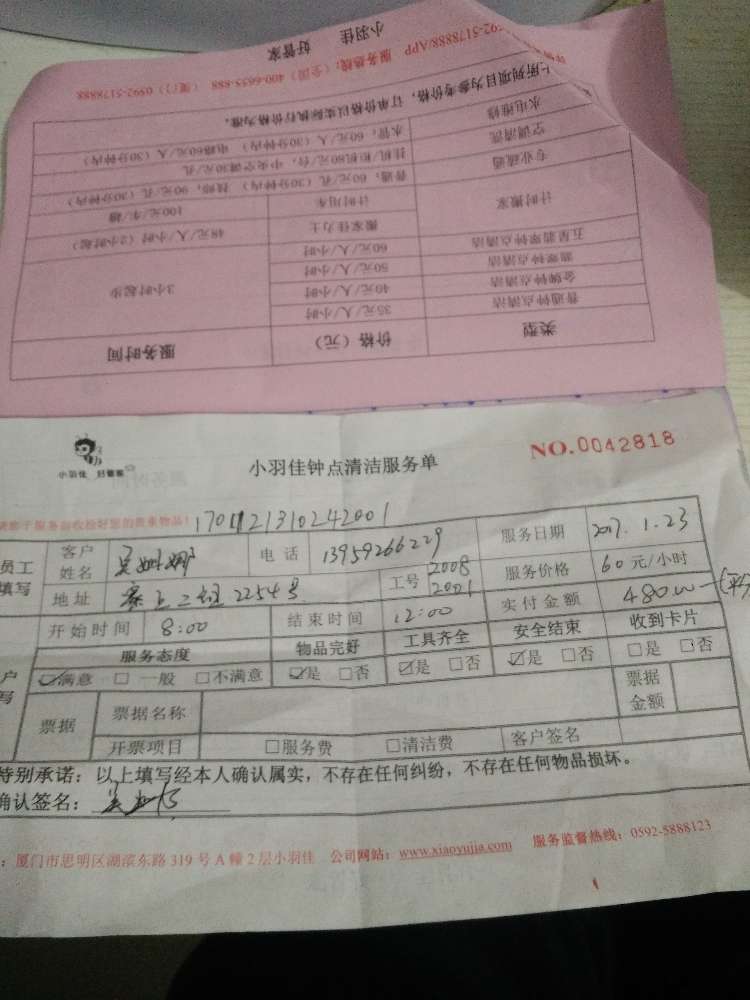 小羽佳 好管家
服务热线：（全国）400-6655-888 （厦门）0592-5178888
592-5178888/APP
上所列项目为参考价格，订单价格以实际执行价格为准。
水电维修 水管：60元/人（30分钟内） 电路60元/人（30分钟内）
空调清洗 挂机/柜机80元/台，中央空调30元/孔
专业疏通 普通：60元/孔（30分钟内）
计时搬家 计时用车 100元/车/趟
搬家佳力士 48元/人/小时（2小时起）
五星翡翠钟点清洁 60元/人/小时
翡翠钟点清洁 50元/人/小时
金牌钟点清洁 40元/人/小时 3小时起步
普通钟点清洁 35元/人/小时
类型 价格（元） 服务时间
小羽佳 好管家
小羽佳钟点清洁服务单
NO.0042818
于服务前收捡好您的贵重物品！ 1701121310242001
员工填写 客户姓名 电话 13959266229 服务日期 2017.1.23
地址 2254号 工号 2008 2001 服务价格 60元/小时
开始时间 8:00 结束时间 12:00 实付金额 480
服务态度 物品完好 工具齐全 安全结束 收到卡片
☑满意 □一般 □不满意 ☑是 □否 ☑是 □否 ☑是 □否 □是 □否
户写 票据 票据名称 票据金额
开票项目 □服务费 □清洁费 客户签名
特别承诺：以上填写经本人确认属实，不存在任何纠纷，不存在任何物品损坏。
确认签名：
：厦门市思明区湖滨东路319号A幢2层小羽佳 公司网站：www.xiaoyujia.com 服务监督热线：0592-5888123